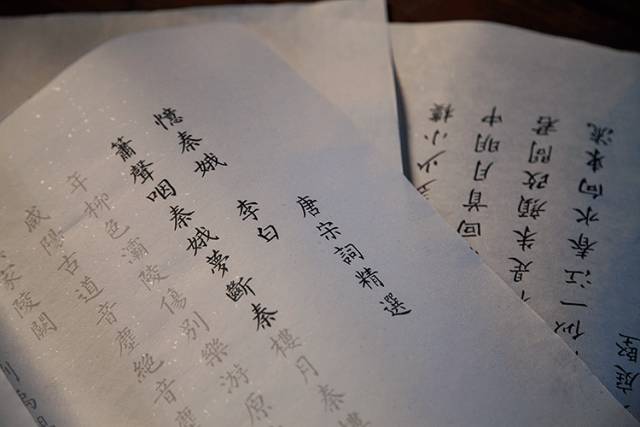 唐宋詞精選
李白
憶秦娥
簫聲咽秦娥夢斷秦樓月秦樓
年柳色灞陵傷別樂游原
咸陽古道音塵絕音塵
家陵闕
少小樓
回首月明中
是朱顏改問君
似一江春水向東流